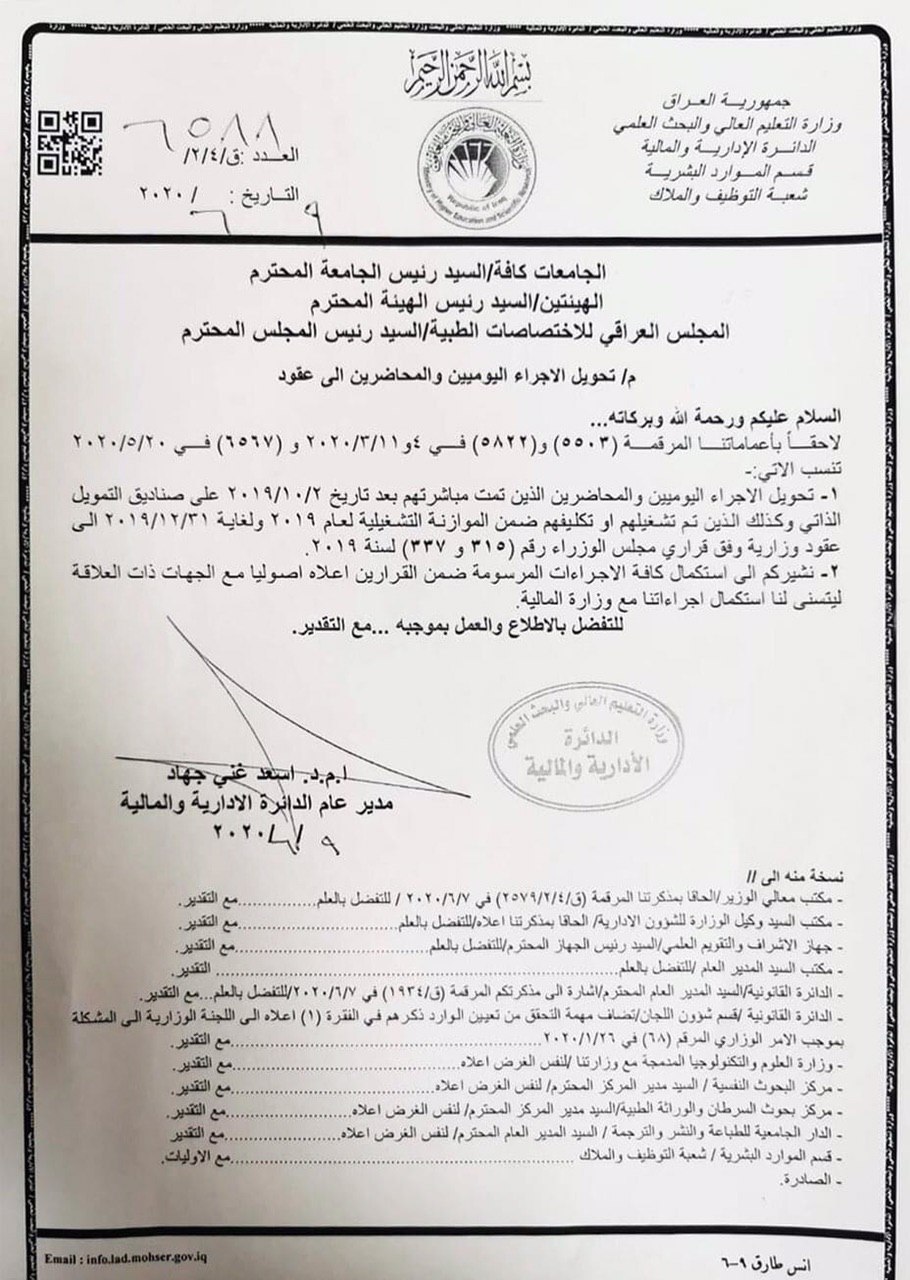 بسم الله الرحمن الرحيم
جمهورية العراق
وزارة التعليم العالي والبحث العلمي
الدائرة الإدارية والمالية
قسم الموارد البشرية
شعبة التوظيف والملاك
العدد :ق/٢/٤/ ٦٥٨٨
التاريخ : ٩ / ٦ / ٢٠٢٠
الجامعات كافة/السيد رئيس الجامعة المحترم
الهيئتين/السيد رئيس الهيئة المحترم
المجلس العراقي للاختصاصات الطبية/السيد رئيس المجلس المحترم
م/ تحويل الاجراء اليوميين والمحاضرين الى عقود
السلام عليكم ورحمة الله وبركاته...
لاحقاً بأعماماتنا المرقمة (٥٥٠٣) و(٥٨٢٢) في ٤و ٢٠٢٠/٣/١١ و (٦٥٦٧) في ٢٠٢٠/٥/٢٠
تنسب الاتي:-
١- تحويل الاجراء اليوميين والمحاضرين الذين تمت مباشرتهم بعد تاريخ ٢٠١٩/١٠/٢ على صناديق التمويل
الذاتي وكذلك الذين تم تشغيلهم او تكليفهم ضمن الموازنة التشغيلية لعام ٢٠١٩ ولغاية ٢٠١٩/١٢/٣١ الى
عقود وزارية وفق قراري مجلس الوزراء رقم (٣١٥ و ٣٣٧) لسنة ٢٠١٩.
٢- نشيركم الى استكمال كافة الاجراءات المرسومة ضمن القرارين اعلاه اصوليا مع الجهات ذات العلاقة
ليتسنى لنا استكمال اجراءاتنا مع وزارة المالية.
للتفضل بالاطلاع والعمل بموجبه ...مع التقدير.
وزارة التعليم العالي والبحث العلمي
الدائرة
الأدارية والمالية
ا.م.د. اسعد غني جهاد
مدير عام الدائرة الادارية والمالية
٩ / ٦ / ٢٠٢٠
نسخة منه الى //
- مكتب معالي الوزير/الحاقا بمذكرتنا المرقمة (ق/٢٥٧٩/٢/٤) في ٢٠٢٠/٦/٧ / للتفضل بالعلم...............مع التقدير.
- مكتب السيد وكيل الوزارة للشؤون الادارية/ الحاقا بمذكرتنا اعلاه/للتفضل بالعلم...............مع التقدير.
- جهاز الاشراف والتقويم العلمي/السيد رئيس الجهاز المحترم/للتفضل بالعلم...............مع التقدير.
- مكتب السيد المدير العام /للتفضل بالعلم............... التقدير.
- الدائرة القانونية/السيد المدير العام المحترم/اشارة الى مذكرتكم المرقمة (ق/١٩٣٤) في ٢٠٢٠/٦/٧/للتفضل بالعلم...مع التقدير.
- الدائرة القانونية /قسم شؤون اللجان/تضاف مهمة التحقق من تعيين الوارد ذكرهم في الفقرة (١) اعلاه الى اللجنة الوزارية الى المشكلة
بموجب الامر الوزاري المرقم (٦٨) في ٢٠٢٠/١/٢٦...............مع التقدير.
- وزارة العلوم والتكنولوجيا المدمجة مع وزارتنا /لنفس الغرض اعلاه...............مع التقدير.
- مركز البحوث النفسية / السيد مدير المركز المحترم/ لنفس الغرض اعلاه...............مع التقدير.
- مركز بحوث السرطان والوراثة الطبية/السيد مدير المركز المحترم/ لنفس الغرض اعلاه...............مع التقدير.
- الدار الجامعية للطباعة والنشر والترجمة / السيد المدير العام المحترم/ لنفس الغرض اعلاه...............مع التقدير
- قسم الموارد البشرية / شعبة التوظيف والملاك ...............مع الاوليات.
- الصادرة.
Email : info.lad.mohser.gov.iq
انس طارق ٩-٦